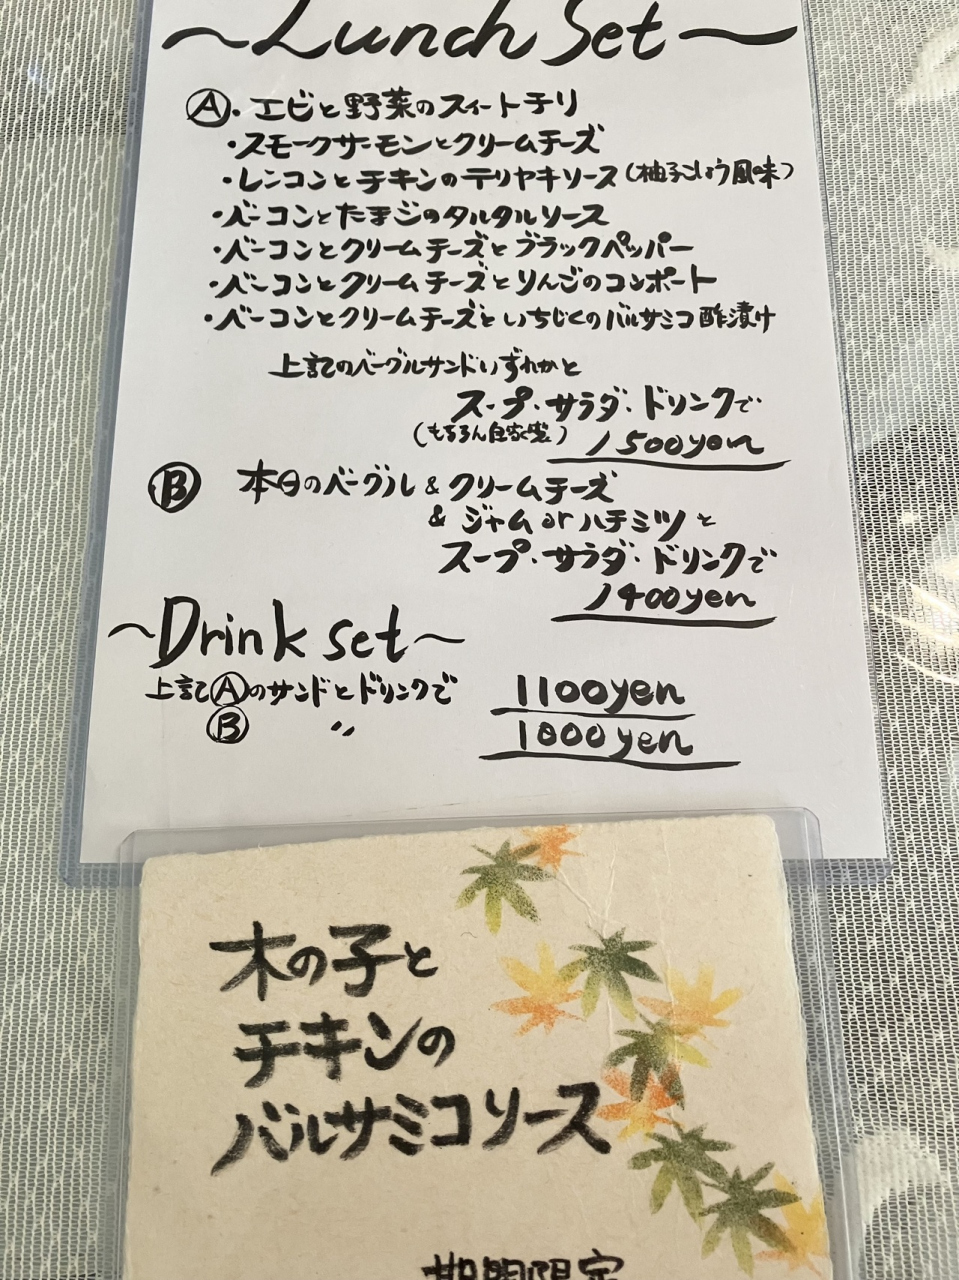 ～Lunch Set～
Ⓐ・エビと野菜のスィートチリ
・スモークサーモンとクリームチーズ
・レンコンとチキンのテリヤキソース(柚子こしょう風味)
・ベーコンとたまごのタルタルソース
・ベーコンとクリームチーズとブラックペッパー
・ベーコンとクリームチーズとりんごのコンポート
・ベーコンとクリームチーズといちじくのバルサミコ酢漬け
上記のベーグルサンドいずれかと
スープ・サラダ・ドリンクで
(もちろん自家製) 1500yen
Ⓑ 本日のベーグル & クリームチーズ
& ジャム or ハチミツ と
スープ・サラダ・ドリンクで
1400yen
～Drink set～
上記Ⓐのサンドとドリンクで 1100yen
Ⓑ 〃 1000yen
木の子と
チキンの
バルサミコソース
期間限定